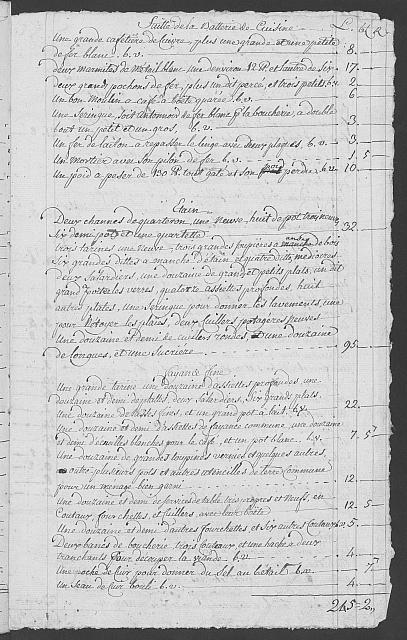 Suitte de la Batterie de Cuisine
Une grande cafetière de cuivre, plus une grande et une petite
de fer blanc b.v. 8.
deux marmites de métail blanc une d'environ 12 ℔. et l'autre de six 17.
deux grands pochons de fer, plus un dit percé, et trois petits b.v. 2
Un bon moulin à café à boëte quarée b.v. 6
Une Seringue, soit Entonnoir de fer blanc pr. la boucherie, à double
bout un petit et un gros, b.v. 3.
Un fer de laiton à repasser le linge avec deux plaques. b.v. 3.
Un mortier avec son pilon de fer b.v. 1. 5
Un poid à peser de 130 ℔. tout gaté et son poid perdu b.v. 10
Etain
Deux channes de quarteron une neuve, huit de pot, trois neuves,
six demi pots et une quartette 32
trois tarines une neuve, trois grandes cupières à manche de bois
Six grandes dittes à manche d'étain et quatre dittes médiocres
deux Saladiers, une douzaine de grands et petits plats, un dit
grand porter les verres, quatorze assiettes profondes, huit
autres plates, une Seringue pour donner les lavements, une
pour nétoyer les plaies, deux cuillers potagères neuses
Une douzaine et demi de cuillers rondes, D'une douzaine
de longues, et une Sucrière 95.
fayance fine
Une grande tarine une douzaine d'assiettes profondes, une
douzaine et demi de plattes, deux Saladiers, Six grands plats.
Une douzaine de tasses fines, et un grand pot à lait. b.v. 22.
Une douzaine et demi d'assiettes de fayance commune, une douzaine
et demi d'écuelles blanches pour le café, et un pot blanc b.v. 7. 5
Une douzaine de grandes toupines vernies et quelques autres
outre plusieurs pots et autres ustencilles de terre commune
pour un menage bien garni 12.
Une douzaine et demi de services de table très propres et neufs, en
Couteaux, fourchettes, et cuillers, avec leur boëte 12. 5
Une douzaine et demi d'autres fourchettes et six autres couteaux b.v. 5.
Deux bancs de boucherie, trois couteaux, et une hache à deux
tranchants pour découper la viande b.v. 4.
Une poche de cuir pour donner du Sel au bétail b.v. 7
Un Seau de cuir bouli b.v. 4.
245 - 2